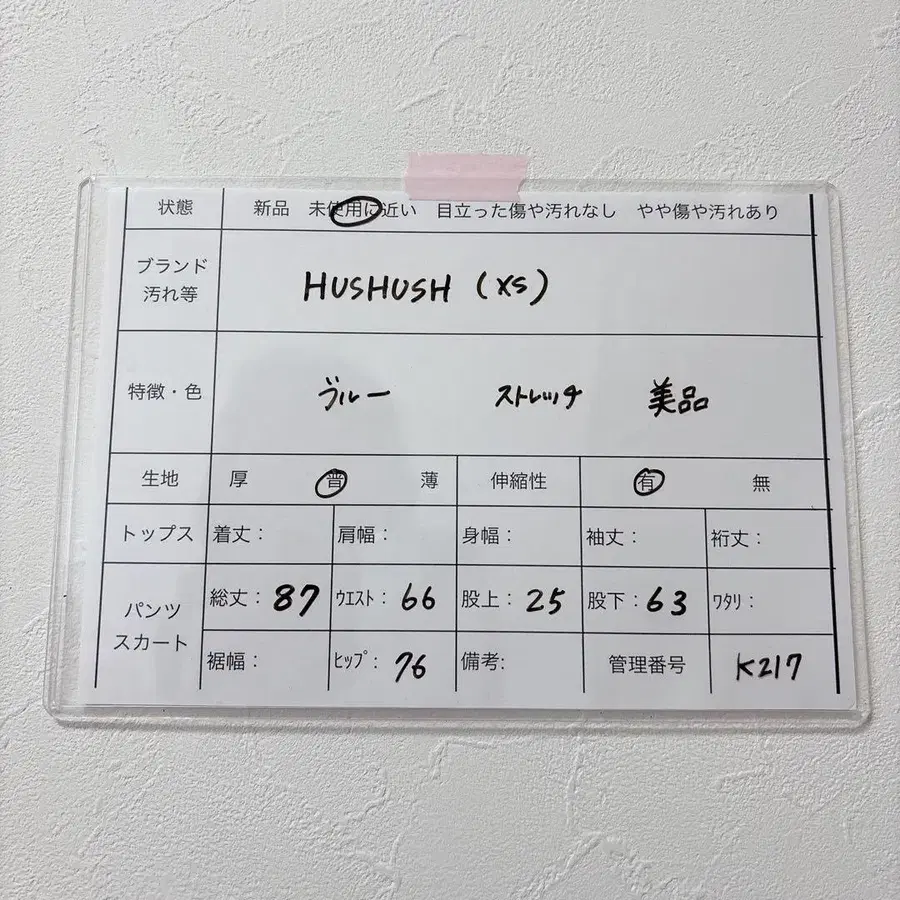 状態 新品 未使用に近い 目立った傷や汚れなし やや傷や汚れあり
ブランド
汚れ等
HUSHUSH (XS)
特徴・色 ブルー ストレッチ 美品
生地 厚 普 薄 伸縮性 有 無
トップス 着丈: 肩幅: 身幅: 袖丈: 裄丈:
パンツ
スカート
総丈: 87 ウエスト: 66 股上: 25 股下: 63 ワタリ:
裾幅: ヒップ: 76 備考: 管理番号 K217